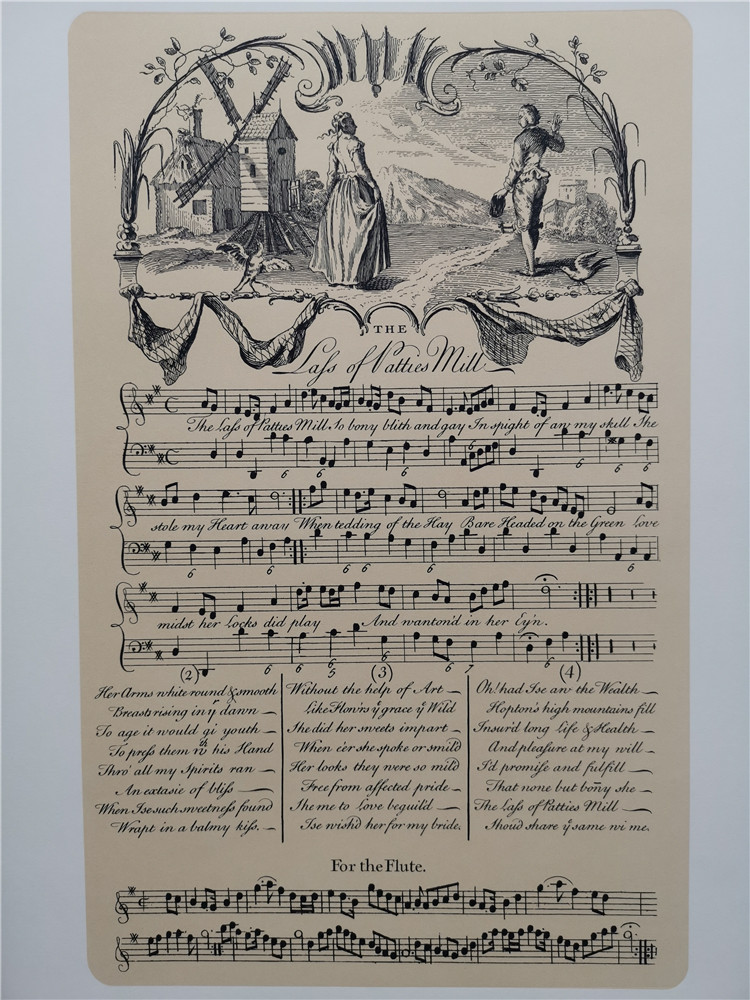 THE
Laſs of Patties Mill
The Laſs of Patties Mill So bony blith and gay In spight of aw my skill She
6 6 6 6 6 6 6 6
stole my Heart away When tedding of the Hay Bare Headed on the Green Love
6 6 6 6 6
midst her Locks did play And wanton'd in her Ey'n.
6 5 6 7
(2)
Her Arms white round & smooth
Breasts rising in yͬ dawn
To age it would gi youth
To preſs them wᵗʰ his Hand
Thro' all my Spirits ran
An extasie of bliſs
When I se such sweetneſs found
Wrapt in a balmy kiſs.
(3)
Without the help of Art
Like Flow'rs yͭ grace yͤ Wild
She did her sweets impart
When e'er she spoke or smil'd
Her looks they were so mild
Free from affected pride
She me to Love beguil'd
I se wish'd her for my bride.
(4)
Oh! had I se aw the Wealth
Hopton's high mountains fill
Insur'd long Life & Health
And pleaſure at my will
I'd promiſe and fulfill
That none but boñy she
The Laſs of Patties Mill
Shou'd share yͤ same wi me.
For the Flute.